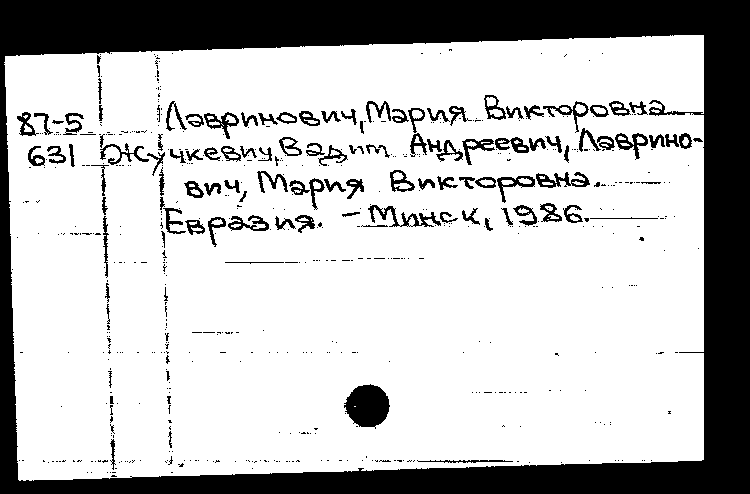 87-5 Лавринович, Мария Викторовна
631 Жучкевич, Вадим Андреевич, Лаврино-
вич, Мария Викторовна.
Евразия. - Минск, 1986.